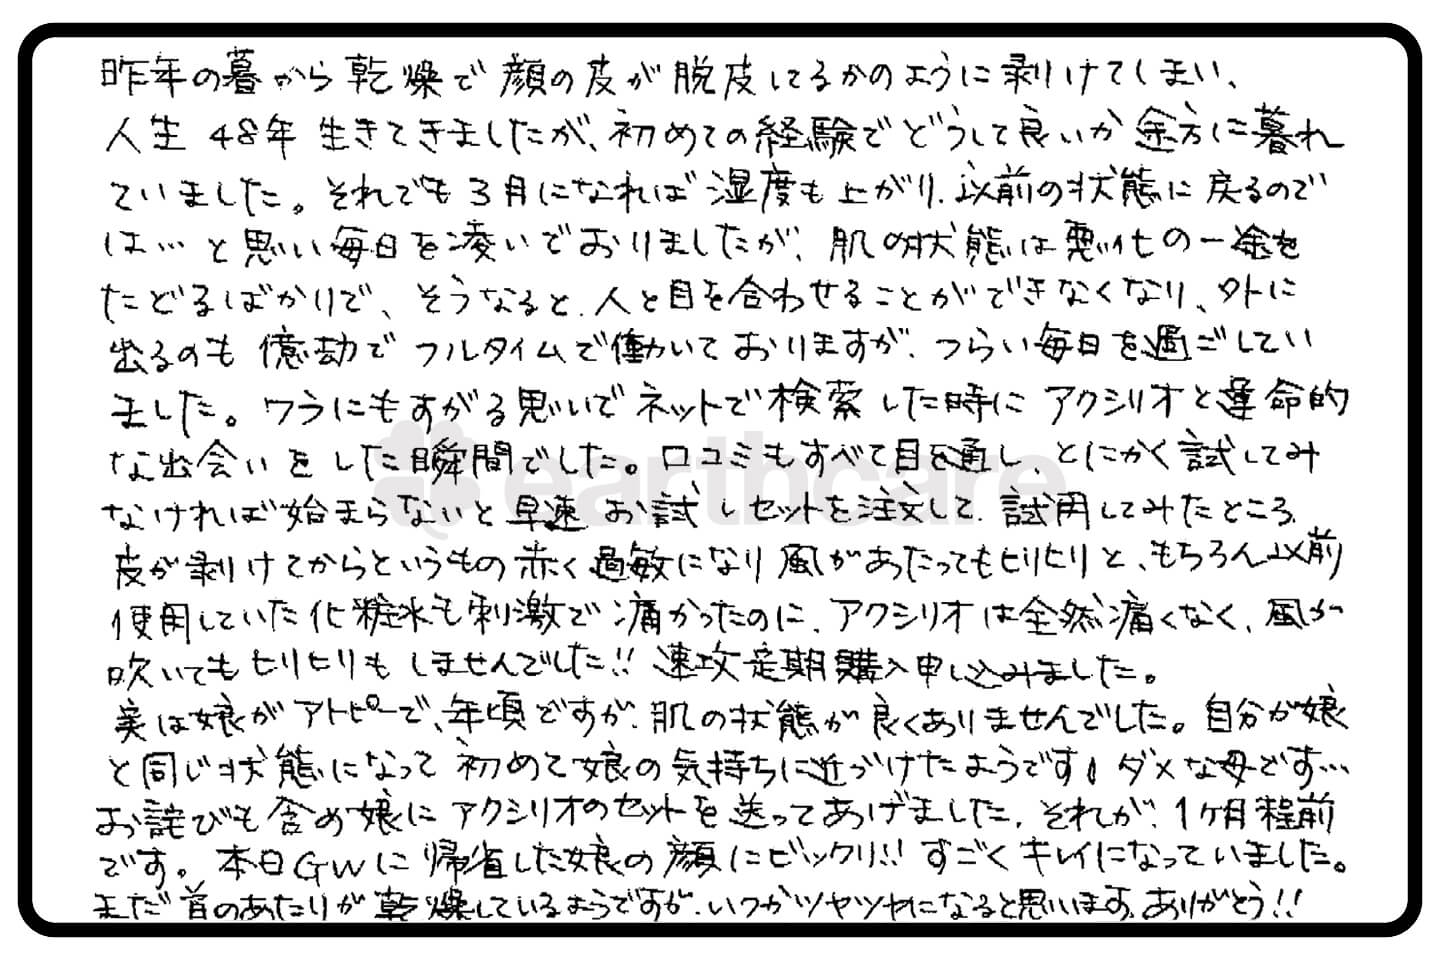 昨年の暮から乾燥で顔の皮が脱皮してるかのように剥けてしまい、
人生48年生きてきましたが、初めての経験でどうして良いか途方に暮れ
ていました。それでも3月になれば湿度も上がり、以前の状態に戻るので
は…と思い毎日を凌いでおりましたが、肌の状態は悪化の一途を
たどるばかりで、そうなると、人と目を合わせることができなくなり、外に
出るのも億劫でフルタイムで働いておりますが、つらい毎日を過ごしてい
ました。ワラにもすがる思いでネットで検索した時にアクシリオと運命的
な出会いをした瞬間でした。口コミもすべて目を通し、とにかく試してみ
なければ始まらないと早速お試しセットを注文して、試用してみたところ、
皮が剥けてからというもの赤く過敏になり風があたってもヒリヒリと、もちろん以前
使用していた化粧水も刺激で痛かったのに、アクシリオは全然痛くなく、風が
吹いてもヒリヒリもしませんでした!!速攻定期購入申し込みました。
実は娘がアトピーで、年頃ですが、肌の状態が良くありませんでした。自分が娘
と同じ状態になって初めて娘の気持ちに近づけたようです!ダメな母です…
お詫びも含め娘にアクシリオのセットを送ってあげました。それが、1ヶ月程前
です。本日GWに帰省した娘の顔にビックリ!!すごくキレイになっていました。
まだ首のあたりが乾燥しているようですが、いつかツヤツヤになると思います。ありがとう!!
earthcare